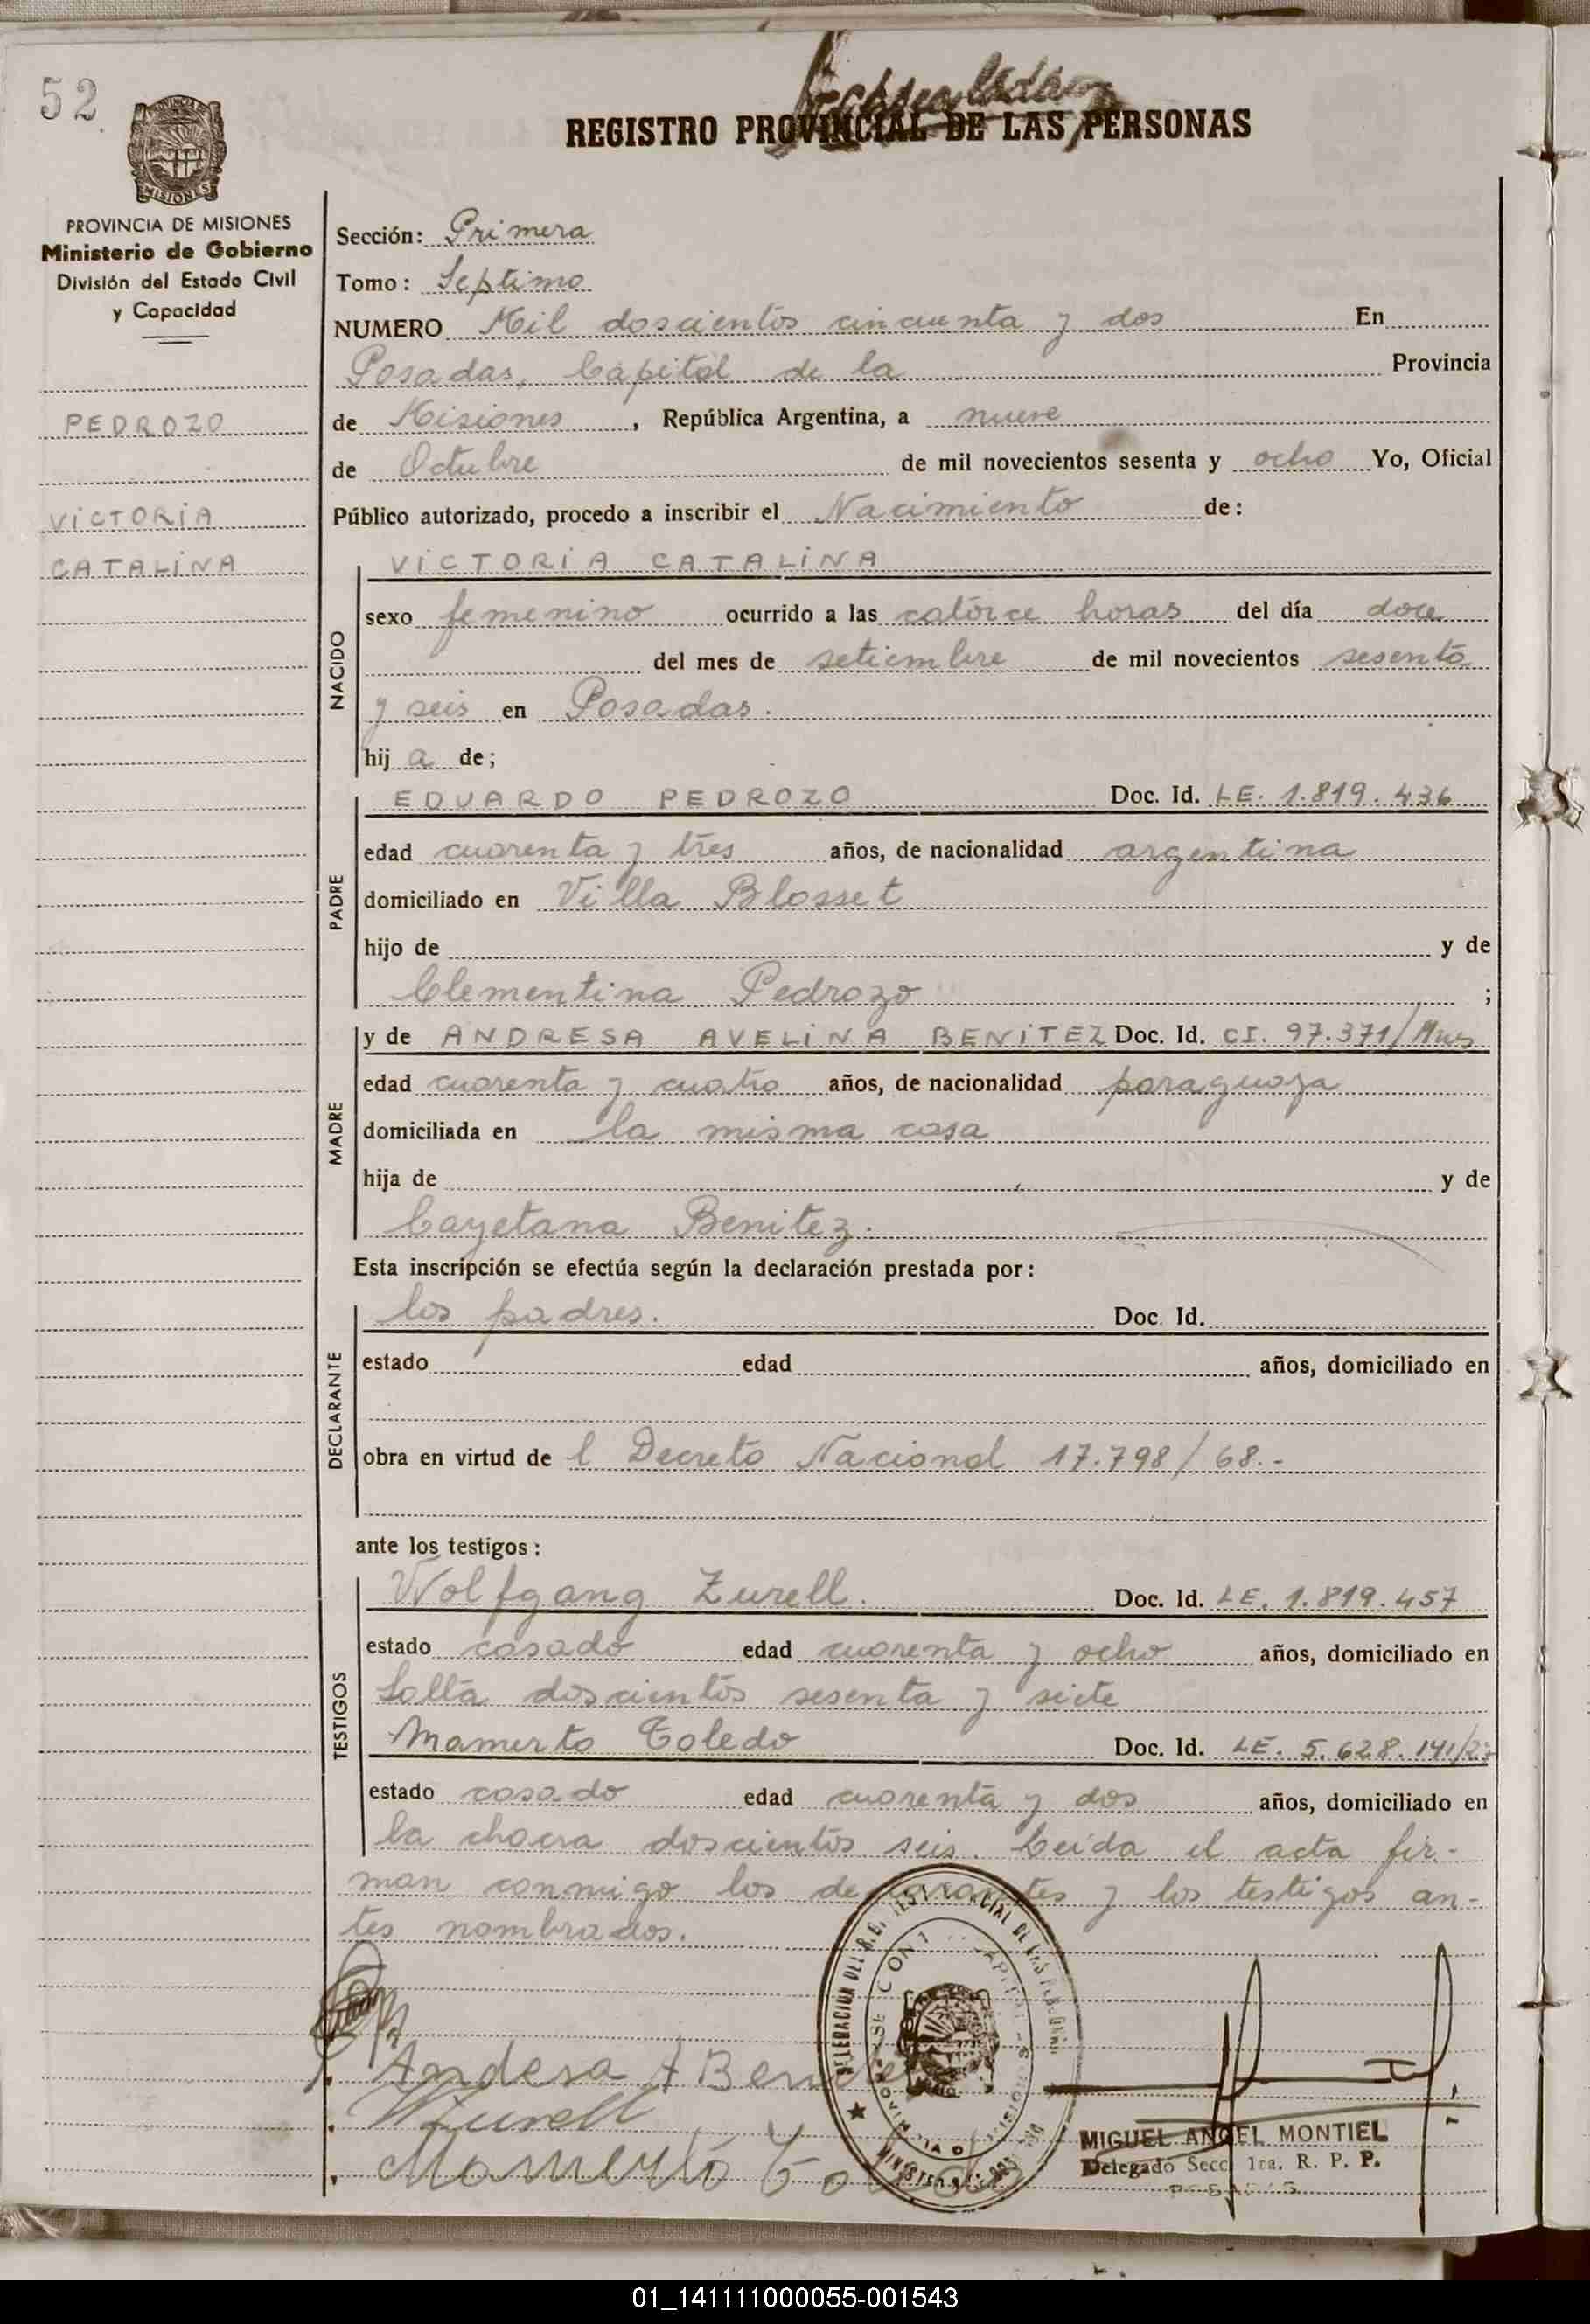 52
REGISTRO PROVINCIAL DE LAS PERSONAS
MISIONES
PROVINCIA DE MISIONES
Ministerio de Gobierno
División del Estado Civil
y Capacidad
PEDROZO
VICTORIA
CATALINA
Sección: Primera
Tomo: Septimo
NUMERO Mil doscientos cincuenta y dos En
Posadas, Capital de la Provincia
de Misiones, República Argentina, a nueve
de Octubre de mil novecientos sesenta y ocho Yo, Oficial
Público autorizado, procedo a inscribir el Nacimiento de:
NACIDO
VICTORIA CATALINA
sexo femenino ocurrido a las catorce horas del día doce
del mes de setiembre de mil novecientos sesenta
y seis en Posadas.
hij a de;
PADRE
EDUARDO PEDROZO Doc. Id. LE. 1.819.436
edad cuarenta y tres años, de nacionalidad argentina
domiciliado en Villa Blosset
hijo de y de
Clementina Pedrozo ;
MADRE
y de ANDRESA AVELINA BENITEZ Doc. Id. CI. 97.371/Mnes
edad cuarenta y cuatro años, de nacionalidad paraguaya
domiciliada en la misma casa
hija de y de
Cayetana Benitez.
Esta inscripción se efectúa según la declaración prestada por:
DECLARANTE
los padres. Doc. Id.
estado edad años, domiciliado en
obra en virtud de l Decreto Nacional 17.798/68.-
ante los testigos:
TESTIGOS
Wolfgang Zurell. Doc. Id. LE. 1.819.457
estado casado edad cuarenta y ocho años, domiciliado en
Salta doscientos sesenta y siete
Mamerto Toledo Doc. Id. LE. 5.628.141/
estado casado edad cuarenta y dos años, domiciliado en
la chacra doscientos seis. Leida el acta fir-
man conmigo los declarantes y los testigos an-
tes nombrados.
Andesa A Benitez
WZurell
Mamerto Toledo
MIGUEL ANGEL MONTIEL
Delegado Secc. 1ra. R. P. P.
POSADAS
01_141111000055-001543